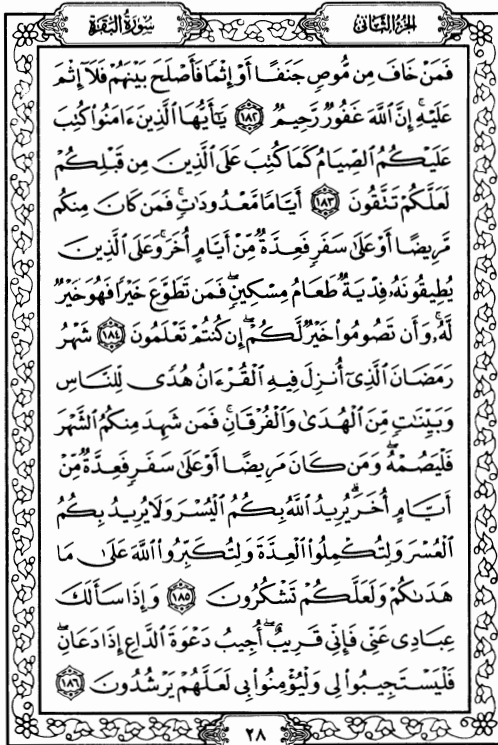 سُورَةُ البَقَرَةِ
الجُزْءُ الثَّانِي
فَمَنْ خَافَ مِن مُّوصٍ جَنَفًا أَوْ إِثْمًا فَأَصْلَحَ بَيْنَهُمْ فَلَآ إِثْمَ
عَلَيْهِ ۚ إِنَّ ٱللَّهَ غَفُورٌ رَّحِيمٌ ١٨٢ يَٰٓأَيُّهَا ٱلَّذِينَ ءَامَنُوا۟ كُتِبَ
عَلَيْكُمُ ٱلصِّيَامُ كَمَا كُتِبَ عَلَى ٱلَّذِينَ مِن قَبْلِكُمْ
لَعَلَّكُمْ تَتَّقُونَ ١٨٣ أَيَّامًا مَّعْدُودَٰتٍ ۚ فَمَن كَانَ مِنكُم
مَّرِيضًا أَوْ عَلَىٰ سَفَرٍ فَعِدَّةٌ مِّنْ أَيَّامٍ أُخَرَ ۚ وَعَلَى ٱلَّذِينَ
يُطِيقُونَهُۥ فِدْيَةٌ طَعَامُ مِسْكِينٍ ۖ فَمَن تَطَوَّعَ خَيْرًا فَهُوَ خَيْرٌ
لَّهُۥ ۚ وَأَن تَصُومُوا۟ خَيْرٌ لَّكُمْ ۖ إِن كُنتُمْ تَعْلَمُونَ ١٨٤ شَهْرُ
رَمَضَانَ ٱلَّذِىٓ أُنزِلَ فِيهِ ٱلْقُرْءَانُ هُدًى لِّلنَّاسِ
وَبَيِّنَٰتٍ مِّنَ ٱلْهُدَىٰ وَٱلْفُرْقَانِ ۚ فَمَن شَهِدَ مِنكُمُ ٱلشَّهْرَ
فَلْيَصُمْهُ ۖ وَمَن كَانَ مَرِيضًا أَوْ عَلَىٰ سَفَرٍ فَعِدَّةٌ مِّنْ
أَيَّامٍ أُخَرَ ۗ يُرِيدُ ٱللَّهُ بِكُمُ ٱلْيُسْرَ وَلَا يُرِيدُ بِكُمُ
ٱلْعُسْرَ وَلِتُكْمِلُوا۟ ٱلْعِدَّةَ وَلِتُكَبِّرُوا۟ ٱللَّهَ عَلَىٰ مَا
هَدَىٰكُمْ وَلَعَلَّكُمْ تَشْكُرُونَ ١٨٥ وَإِذَا سَأَلَكَ
عِبَادِى عَنِّى فَإِنِّى قَرِيبٌ ۖ أُجِيبُ دَعْوَةَ ٱلدَّاعِ إِذَا دَعَانِ ۖ
فَلْيَسْتَجِيبُوا۟ لِى وَلْيُؤْمِنُوا۟ بِى لَعَلَّهُمْ يَرْشُدُونَ ١٨٦
٢٨